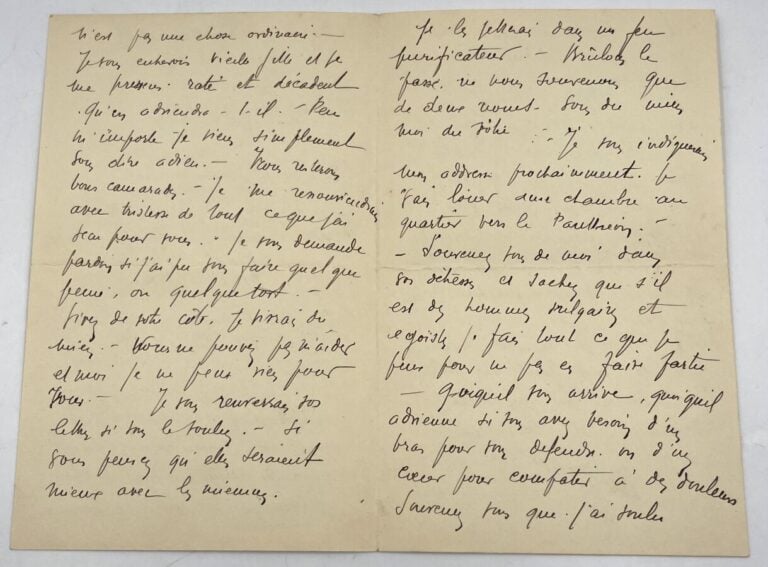 n'est pas une chose ordinaire. —
Je vous entrevois vieille fille et je
me pressens raté et décadent
qu'en adviendra-t-il. — Peu
m'importe je viens simplement
vous dire adieu. — Nous resterons
bons camarades. — Je me ressouviendrai
avec tristesse de tout ce que j'ai
pour vous. — Je vous demande
pardon si j'ai pu vous faire quelque
peine, ou quelque tort. —
Vivez de votre côté. Je vivrai du
mien. — Vous ne pouvez pas m'aider
et moi je ne peux rien pour
vous. — Je vous renverrai vos
lettres si vous le voulez. — Si
vous pensez qu'elles seraient
mieux avec les miennes.
Je les jetterai dans un feu
purificateur. — Brûlons le
passé, ne nous souvenons que
de deux noms. Vous du mien
moi du vôtre. — Je vous indiquerai
mon addresse prochainement. Je
vais louer une chambre au
quartier vers le Panthéon. —
— Souvenez vous de moi dans
vos détresses et sachez que s'il
est des hommes vulgaires et
egoistes je fais tout ce que je
peux pour ne pas en faire partie
— Quoiqu'il vous arrive, quoiqu'il
advienne si vous avez besoin d'un
bras pour vous defendre ou d'un
cœur pour compatir à des douleurs
Souvenez vous que j'ai voulu